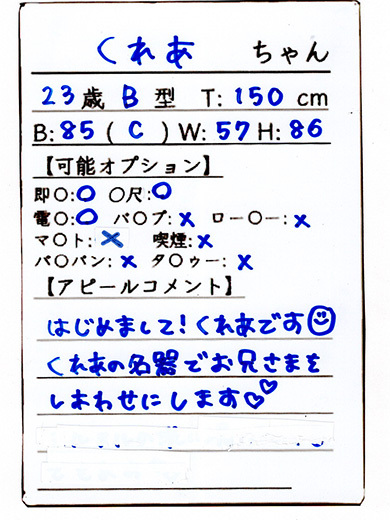 くれあ ちゃん
23歳 B 型 T: 150 cm
B: 85 ( C ) W: 57 H: 86
【可能オプション】
即〇:○ 〇尺:○
電〇:○ バ〇ブ: × ロー〇ー: ×
マ〇ト: × 喫煙: ×
パ〇パン: × タ〇ゥー: ×
【アピールコメント】
はじめまして!くれあです☺
くれあの名器でお兄さまを
しあわせにします♡♡